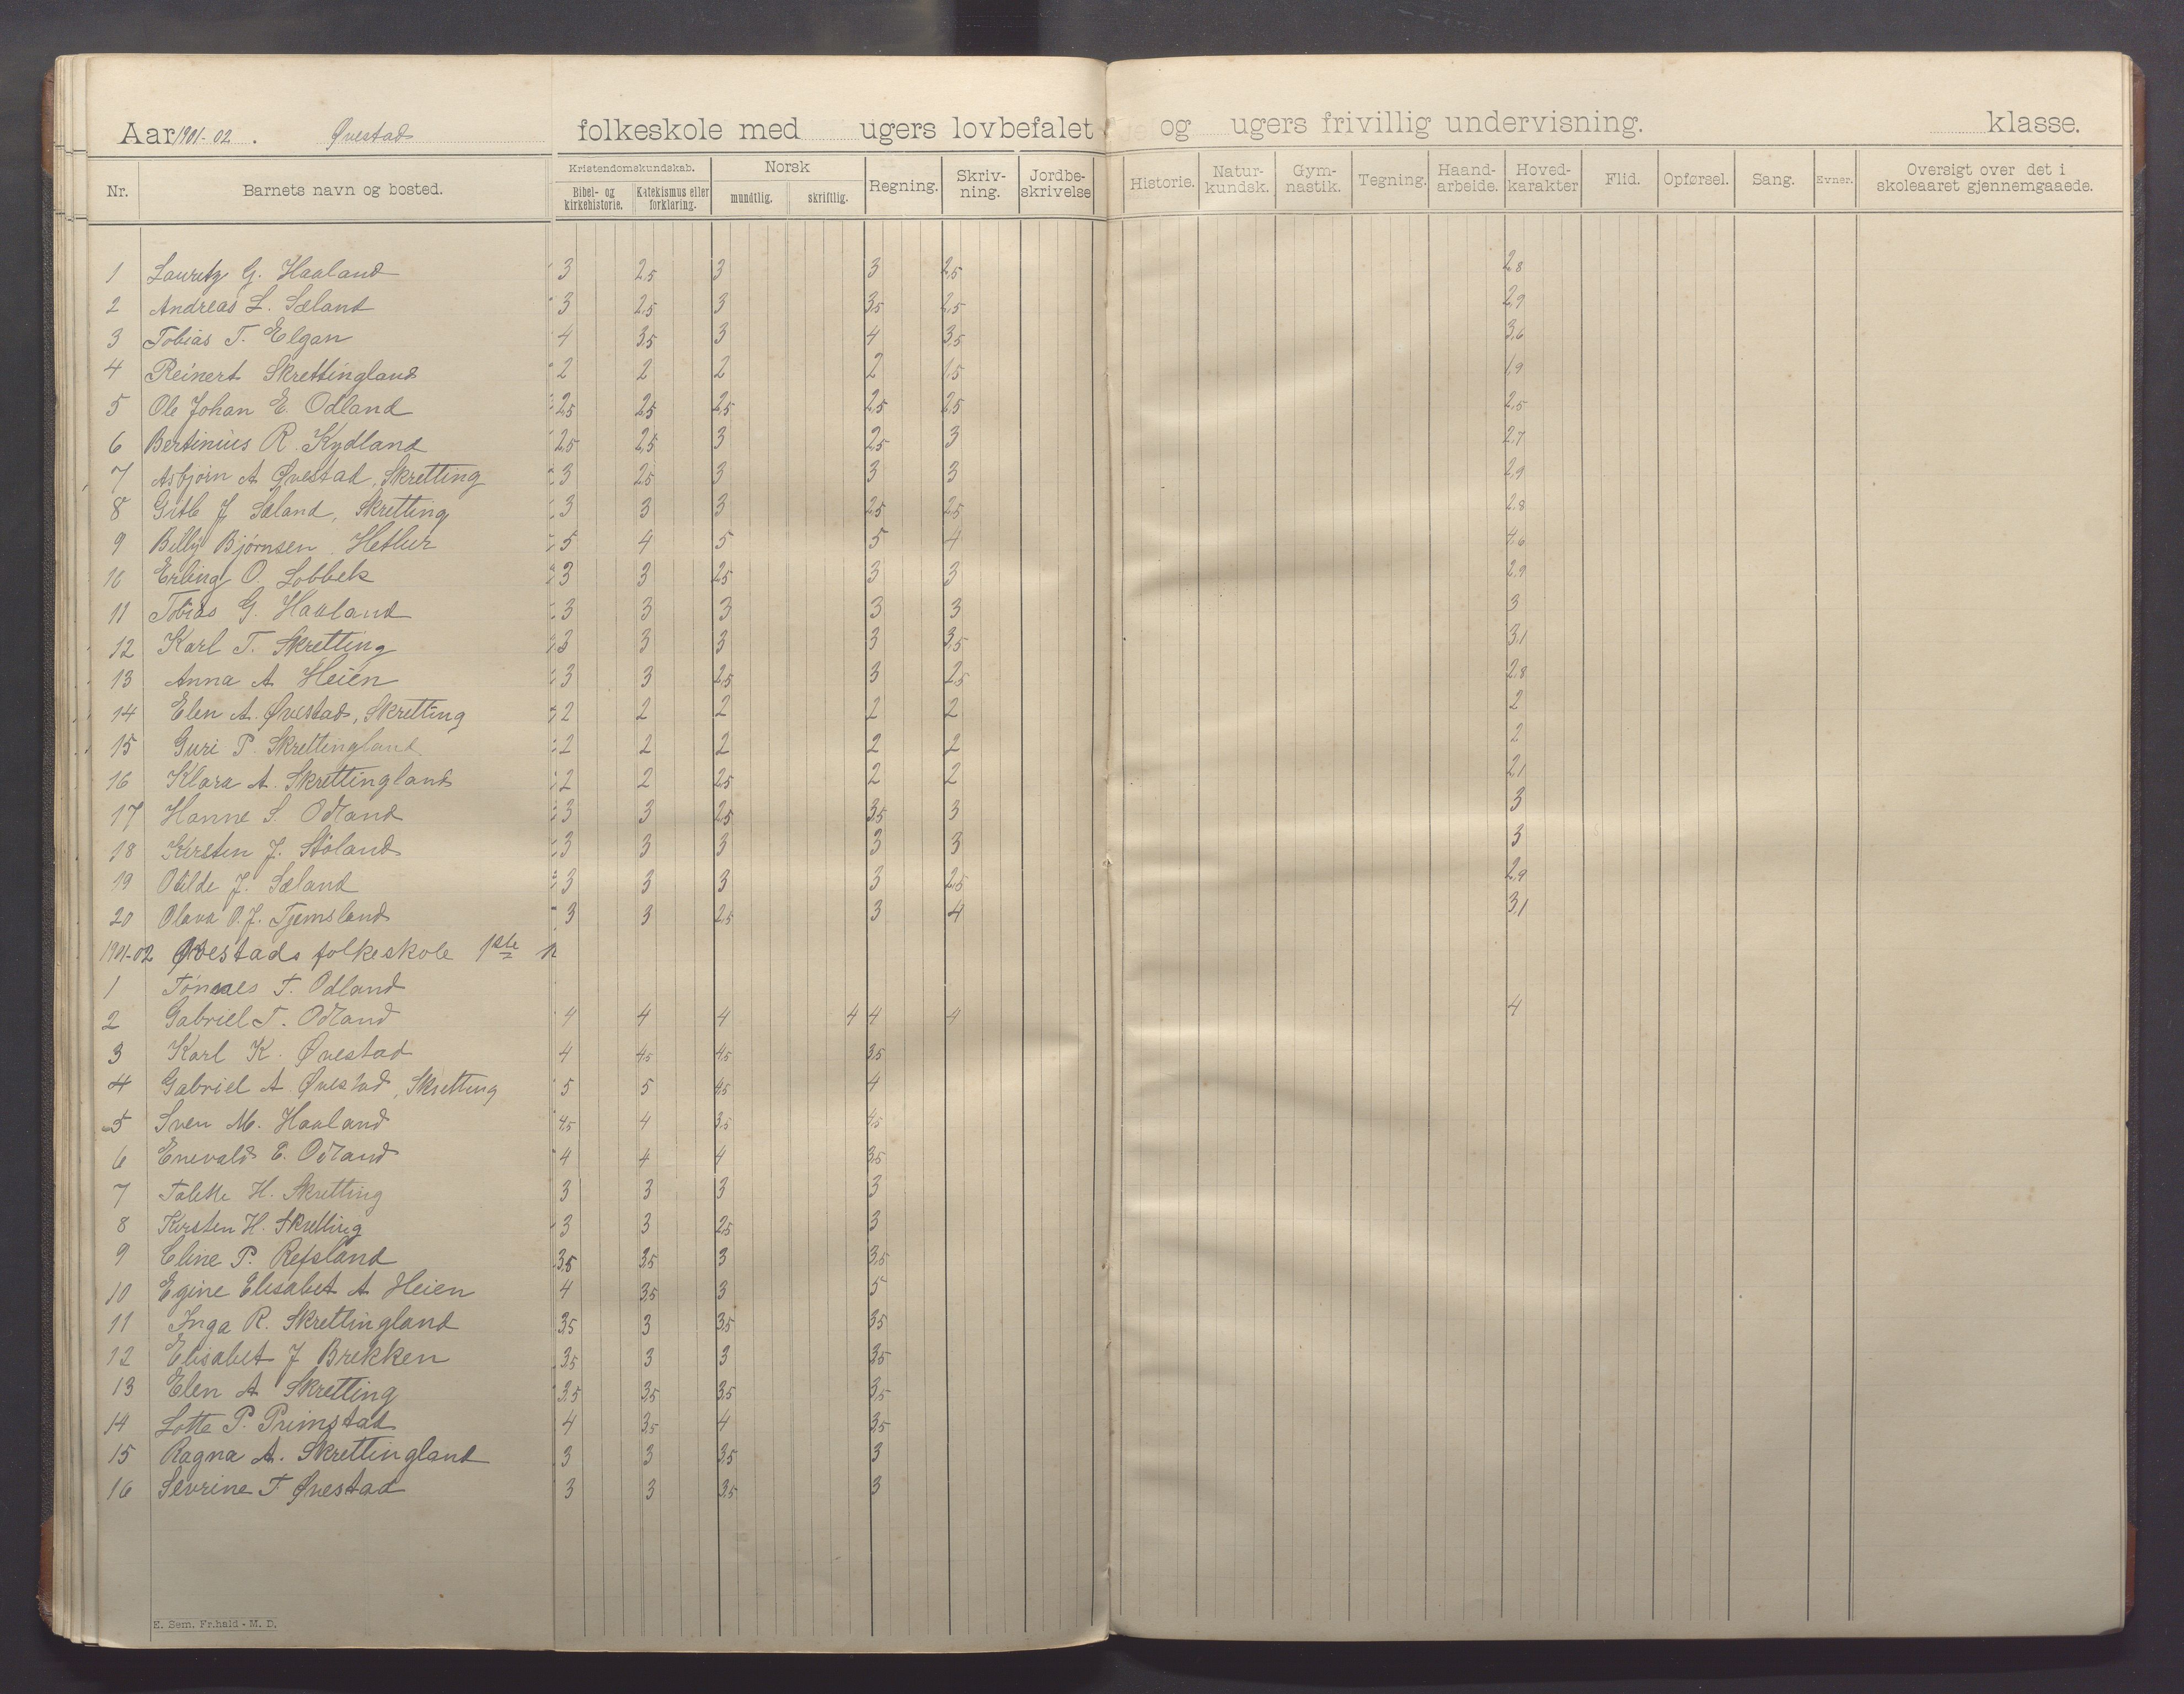 Aar 1901-02. Øvestad folkeskole med ugers lovbefalet og ugers frivillig undervisning. klasse.
Nr. Barnets navn og bosted. Kristendomskundskab. Bibel- og kirkehistorie. Katekismus eller forklaring. Norsk mundtlig. skriftlig. Regning. Skriv-ning. Jordbe-skrivelse Historie. Natur-kundsk. Gym-nastik. Tegning. Haand-arbeide. Hoved-karakter Flid. Opførsel. Sang. Evner. Oversigt over det i skoleaaret gjennemgaaede.
1 Lauritz G. Haaland 3 2,5 3 3 2,5 2,8
2 Andreas L. Sæland 3 2,5 3 3,5 2,5 2,9
3 Tobias T. Elgan 4 3,5 3 4 3,5 3,6
4 Reinert Skrettingland 2 2 2 2 1,5 1,9
5 Ole Johan E. Odland 2,5 2,5 2,5 2,5 2,5 2,5
6 Bertinius R. Kydland 2,5 2,5 3 2,5 3 2,7
7 Asbjørn A Øvestad, Skretting 3 2,5 3 3 3 2,9
8 J Sæland, Skretting 3 3 3 2,5 2,5 2,8
9 Billy Bjørnsen, Hetlur 5 4 5 5 4 4,6
10 Erling O. Lobbek 3 3 2,5 3 3 2,9
11 Tobias G. Haaland 3 3 3 3 3 3
12 Karl T. Skretting 3 3 3 3 3,5 3,1
13 Anna A Heien 3 3 2,5 3 2,5 2,8
14 Elen A. Øvestad, Skretting 2 2 2 2 2 2
15 Guri P. Skrettingland 2 2 2 2 2 2
16 Klara A. Skrettingland 2 2 2,5 2 2 2,1
17 Hanne S. Odland 3 3 2,5 3,5 3 3
18 Kirsten J. Støland 3 3 3 3 3 3
19 Otilde J. Sæland 3 3 3 3 2,5 2,9
20 Olava O. J. Tjemsland 3 3 2,5 3 4 3,1
1901-02 Øvestads folkeskole 1ste
1 Tønnes T. Odland
2 Gabriel T. Odland 4 4 4 4 4 4 4
3 Karl K. Øvestad 4 4,5 4,5 3,5
4 Gabriel A. Øvestad, Skretting 5 5 4,5 4
5 Sven M. Haaland 4,5 4 3,5 4,5
6 Enevald E. Odland 4 4 4 3,5
7 Talette H. Skretting 3 3 3 3
8 Kirsten H. Skretting 3 3 2,5 3
9 Eline P. Refsland 3,5 3,5 3 3,5
10 Egine Elisabet A Heien 4 3,5 3 5
11 Inga R. Skrettingland 3,5 3 3,5 3,5
12 Elisabet J Brekken 3,5 3 3 3,5
13 Elen A Skretting 3,5 3,5 3,5 3,5
14 Lotte P. Primstad 4 3,5 4 3,5
15 Ragna A. Skrettingland 3 3 3,5 3
16 Sevrine T Øvestad 3 3 3,5 3
E. Sem, Fr.hald - M. D.